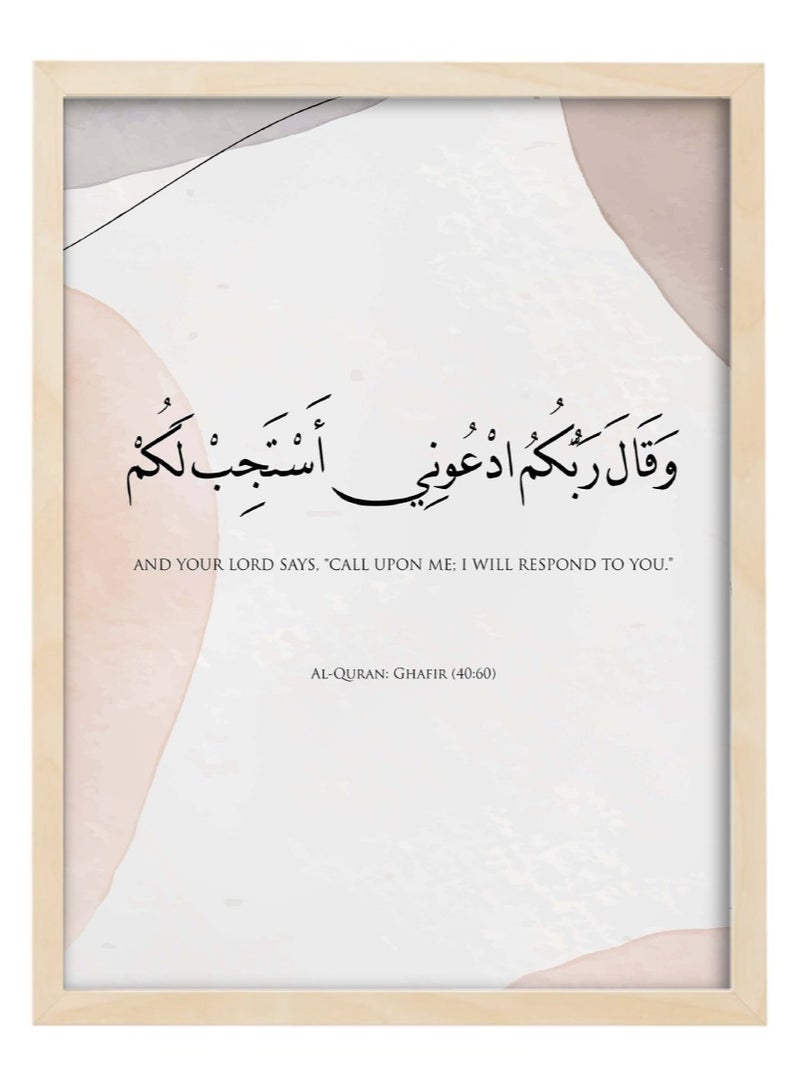 وَقَالَ رَبُّكُمُ ادْعُونِي أَسْتَجِبْ لَكُمْ
AND YOUR LORD SAYS, "CALL UPON ME; I WILL RESPOND TO YOU."
AL-QURAN: GHAFIR (40:60)